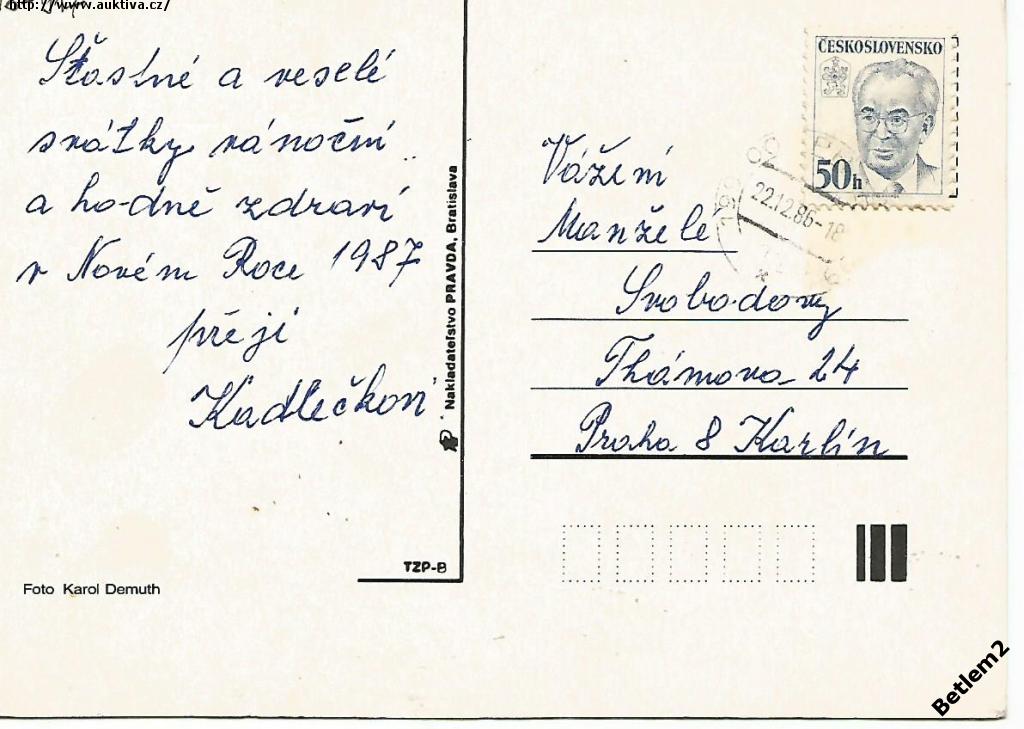 http://www.auktiva.cz/
Šťastné a veselé
svátky vánoční
a hodně zdraví
v Novém Roce 1987
přejí
Kadlečkovi
Nakladateľstvo PRAVDA, Bratislava
TZP-B
Foto Karol Demuth
ČESKOSLOVENSKO
50h
22.12.86-18
Vážení
Manželé
Svobodovy
Thámova 24
Praha 8 Karlín
Betlem2